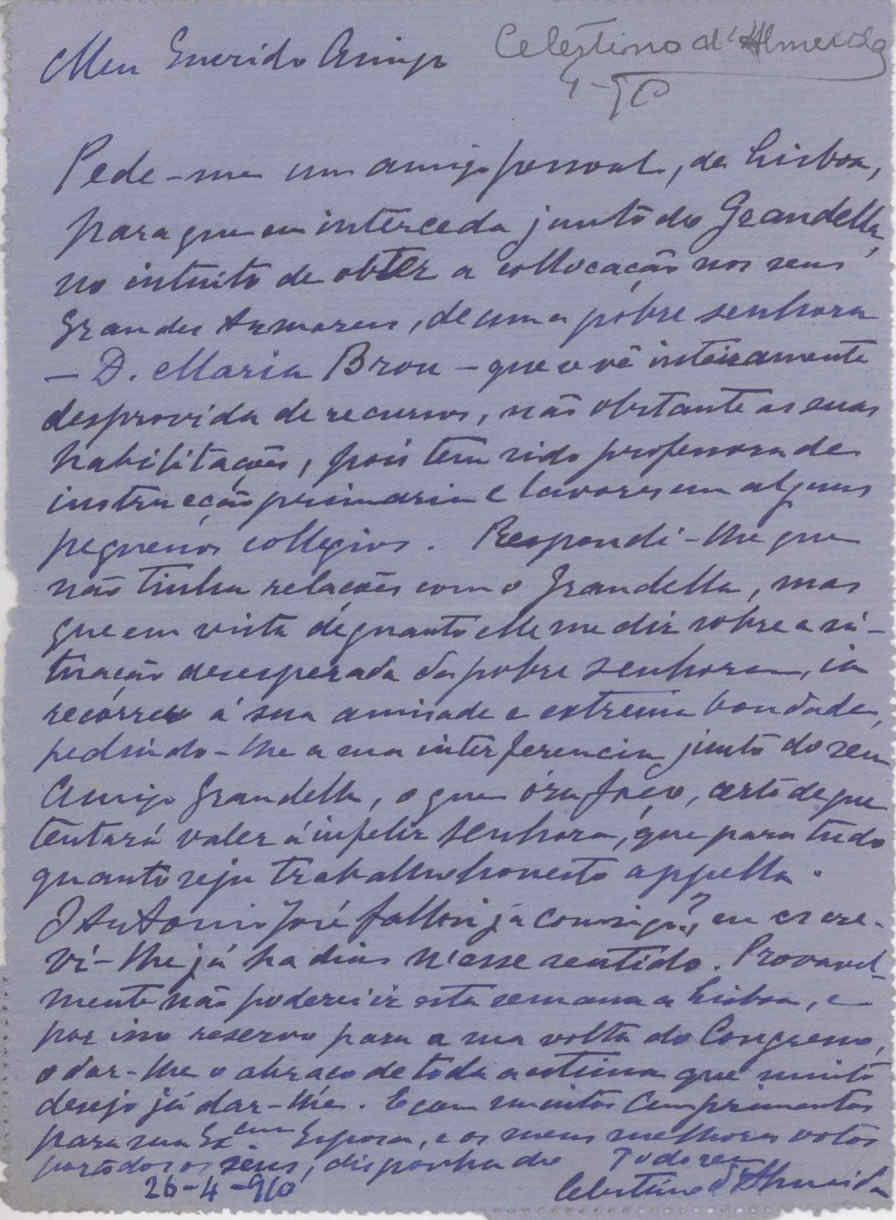 Meu Querido Amigo
Celestino d'Almeida
4-910
Pede-me um amigo pessoal, de Lisboa,
para que eu interceda junto do Grandella,
no intuito de obter a collocação nos seus
Grandes Armazens, de uma pobre senhora
— D. Maria Brou — que se vê inteiramente
desprovida de recursos, não obstante as suas
habilitações, pois tem sido professora de
instrucção primaria e lavores em alguns
pequenos collegios. Respondi-lhe que
não tinha relações com o Grandella, mas
que em vista de quanto elle me diz sobre a si-
tuação desesperada da pobre senhora, ia
recorrer á sua amisade e extrema bondade,
pedindo-lhe a sua interferencia junto do seu
Amigo Grandella, o que óra faço, certo de que
tentará valer á infeliz senhora, que para tudo
quanto seja trabalho honesto appella.
O Antonio José fallou já comsigo?, eu escre-
vi-lhe já ha dias n'esse sentido. Provavel-
mente não poderei ir esta semana a Lisboa, e
por isso reservo para a sua volta do Congresso,
o dar-lhe o abraço de toda a estima que muito
desejo já dar-lhe. E com muitos cumprimentos
para sua Ex.ma Esposa, e os meus melhores votos
por todos os seus, disponha do
Celestino d'Almeida
26-4-910